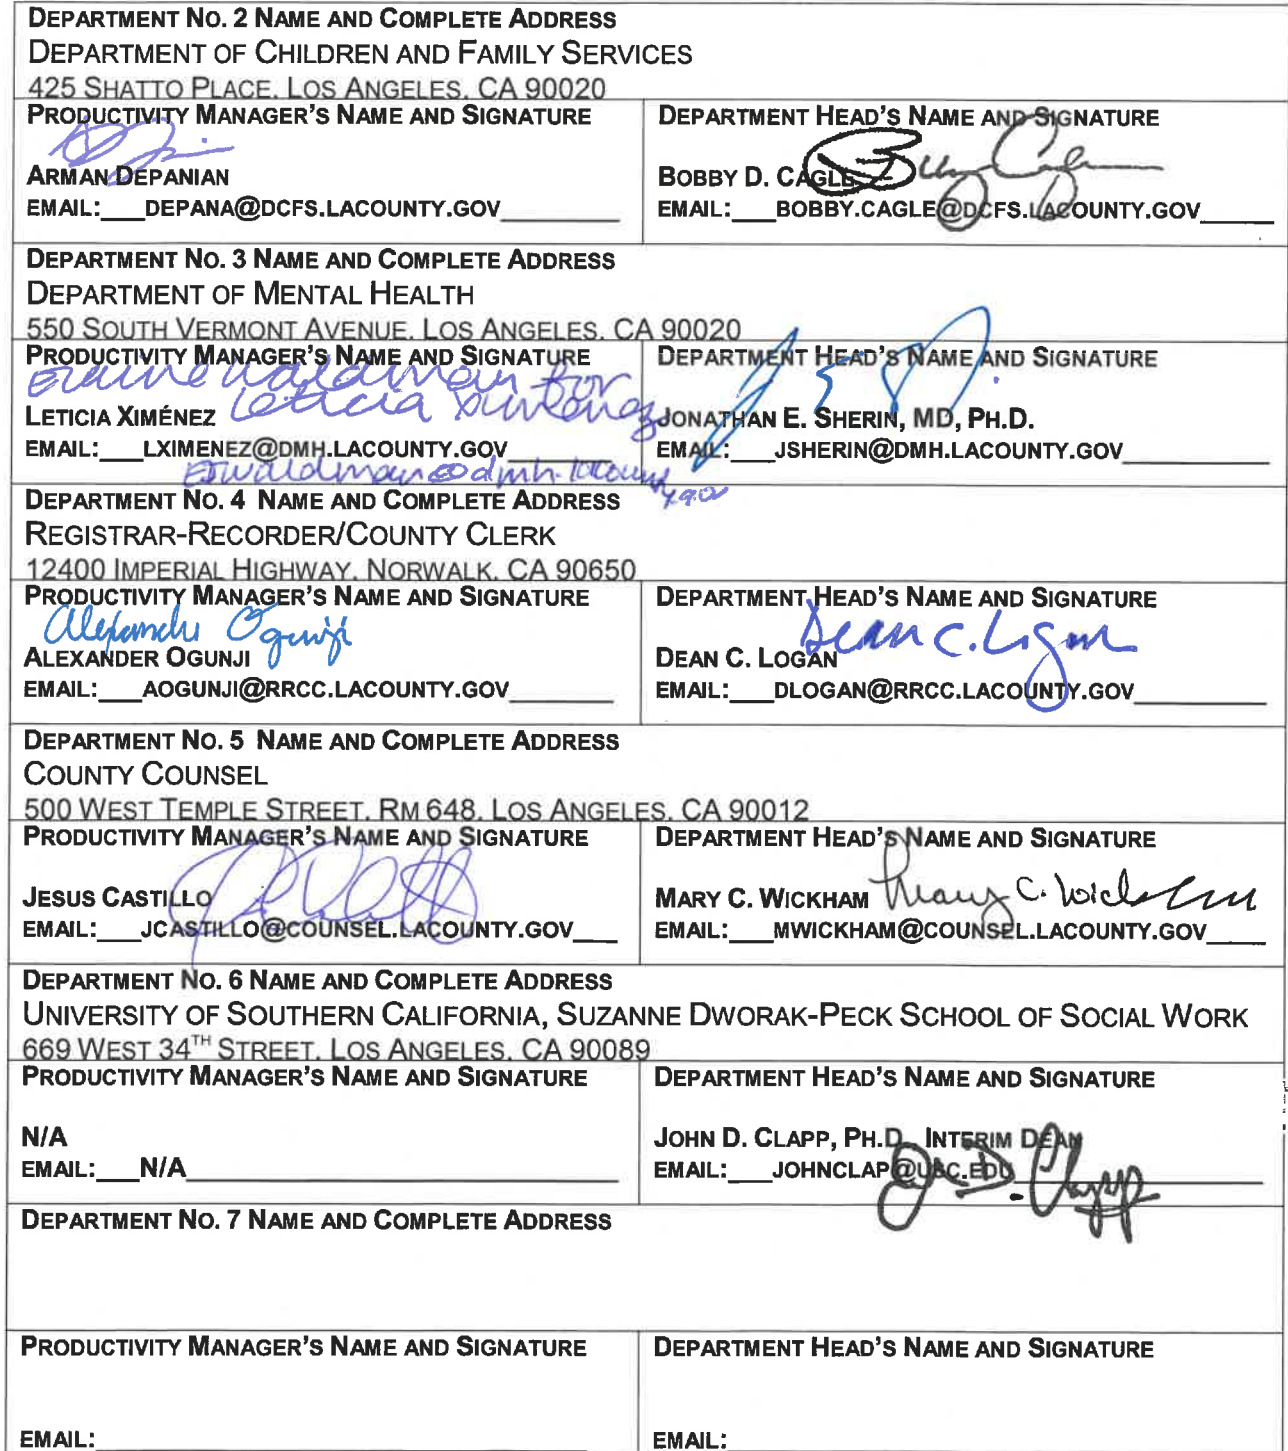 DEPARTMENT NO. 2 NAME AND COMPLETE ADDRESS
DEPARTMENT OF CHILDREN AND FAMILY SERVICES
425 SHATTO PLACE, LOS ANGELES, CA 90020
PRODUCTIVITY MANAGER'S NAME AND SIGNATURE
ARMAN DEPANIAN
EMAIL:___DEPANA@DCFS.LACOUNTY.GOV__________
DEPARTMENT HEAD'S NAME AND SIGNATURE
BOBBY D. CAGLE
EMAIL:___BOBBY.CAGLE@DCFS.LACOUNTY.GOV_____
DEPARTMENT NO. 3 NAME AND COMPLETE ADDRESS
DEPARTMENT OF MENTAL HEALTH
550 SOUTH VERMONT AVENUE, LOS ANGELES, CA 90020
PRODUCTIVITY MANAGER'S NAME AND SIGNATURE
Elaine Waldman for
LETICIA XIMÉNEZ Leticia Ximenez
EMAIL:___LXIMENEZ@DMH.LACOUNTY.GOV________
Ewaldman@dmh.lacounty.gov
DEPARTMENT HEAD'S NAME AND SIGNATURE
JONATHAN E. SHERIN, MD, PH.D.
EMAIL:___JSHERIN@DMH.LACOUNTY.GOV___________
DEPARTMENT NO. 4 NAME AND COMPLETE ADDRESS
REGISTRAR-RECORDER/COUNTY CLERK
12400 IMPERIAL HIGHWAY, NORWALK, CA 90650
PRODUCTIVITY MANAGER'S NAME AND SIGNATURE
Alexander Ogunji
ALEXANDER OGUNJI
EMAIL:___AOGUNJI@RRCC.LACOUNTY.GOV________
DEPARTMENT HEAD'S NAME AND SIGNATURE
Dean C. Logan
DEAN C. LOGAN
EMAIL:___DLOGAN@RRCC.LACOUNTY.GOV__________
DEPARTMENT NO. 5 NAME AND COMPLETE ADDRESS
COUNTY COUNSEL
500 WEST TEMPLE STREET, RM 648, LOS ANGELES, CA 90012
PRODUCTIVITY MANAGER'S NAME AND SIGNATURE
JESUS CASTILLO
EMAIL:___JCASTILLO@COUNSEL.LACOUNTY.GOV____
DEPARTMENT HEAD'S NAME AND SIGNATURE
MARY C. WICKHAM Mary C. Wickham
EMAIL:___MWICKHAM@COUNSEL.LACOUNTY.GOV____
DEPARTMENT NO. 6 NAME AND COMPLETE ADDRESS
UNIVERSITY OF SOUTHERN CALIFORNIA, SUZANNE DWORAK-PECK SCHOOL OF SOCIAL WORK
669 WEST 34TH STREET, LOS ANGELES, CA 90089
PRODUCTIVITY MANAGER'S NAME AND SIGNATURE
N/A
EMAIL:___N/A______________________________
DEPARTMENT HEAD'S NAME AND SIGNATURE
JOHN D. CLAPP, PH.D., INTERIM DEAN
EMAIL:___JOHNCLAP@USC.EDU___________________
DEPARTMENT NO. 7 NAME AND COMPLETE ADDRESS
PRODUCTIVITY MANAGER'S NAME AND SIGNATURE
EMAIL:____________________________________
DEPARTMENT HEAD'S NAME AND SIGNATURE
EMAIL:____________________________________